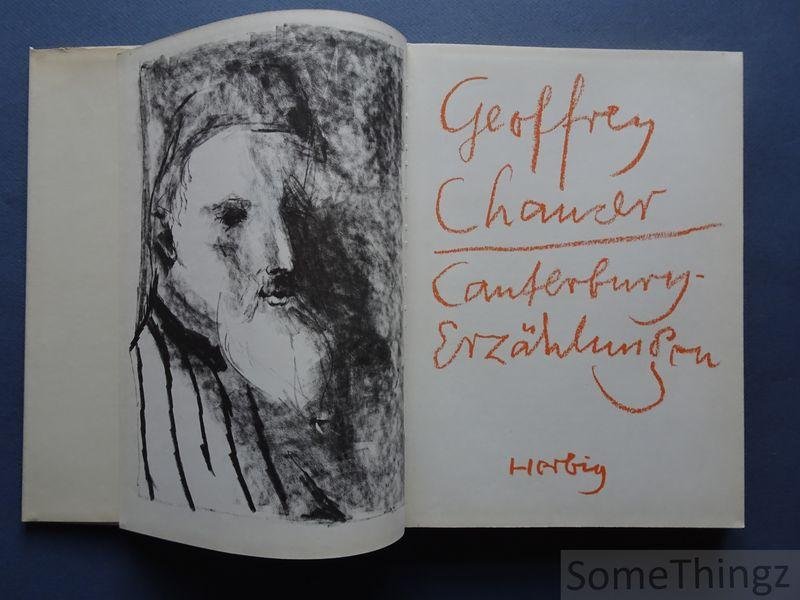 Geoffrey
Chaucer
Canterbury-
Erzählungen
Herbig
SomeThingz